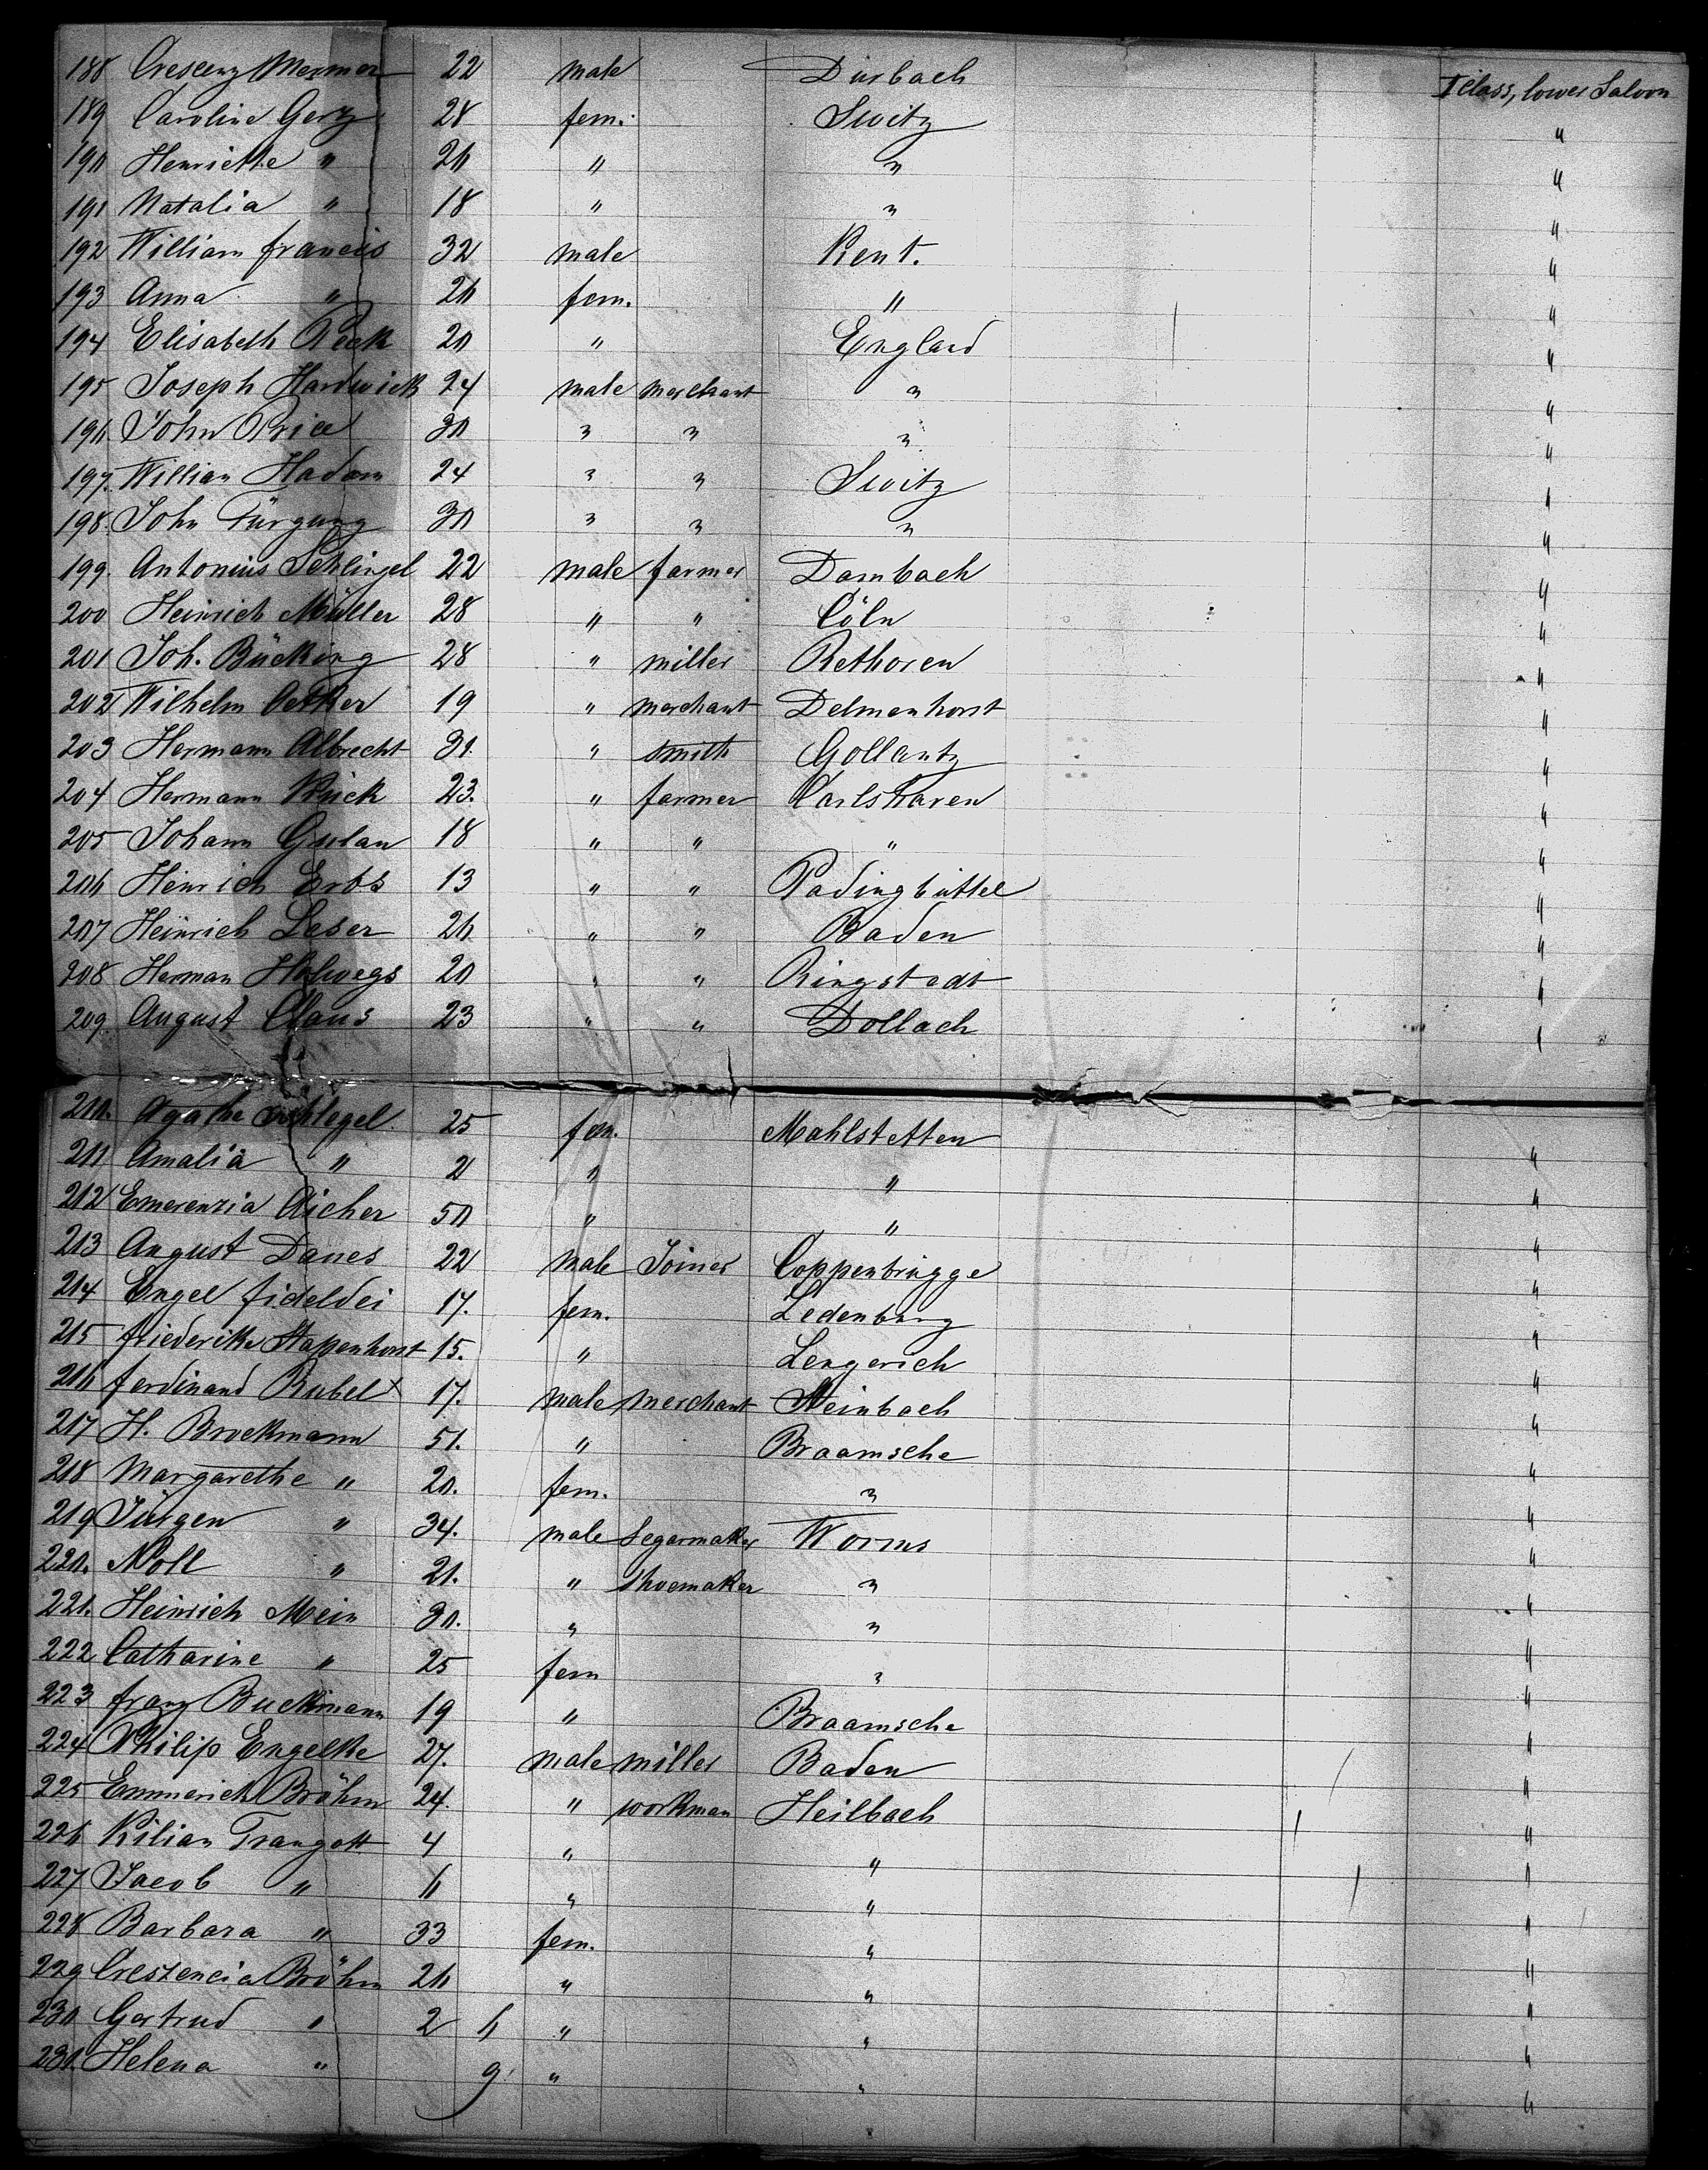 188 Crescenz Mermer 22 male Durbach I Class, lower Saloon
189 Caroline Gerz 28 fem. Switz "
190 Henriette " 26 " " "
191 Natalia " 18 " " "
192 William Francis 32 male Kent. "
193 Anna " 26 fem. " "
194 Elisabeth Peek 20 " England "
195 Joseph Hardwick 24 male merchant " "
196. John Price 30 " " " "
197. William Hadorn 24 " " Switz "
198. John 30 " " " "
199. Antonius Schlingel 22 male farmer Dambach "
200 Heinrich Müller 28 " " Cöln "
201 Joh. Bücking 28 " miller Rethoren "
202 Wilhelm Oetker 19 " merchant Delmenhorst "
203 Hermann Albrecht 31. " smith Gollantz "
204 Hermann 23. " farmer Carlshaven "
205 Johann 18 " " " "
206 Heinrich Erbs 13 " " Padingbüttel "
207 Heinrich Leser 26 " " Baden "
208 Herman Holwegs 20 " " Ringstedt "
209. August Claus 23 " " Dollach "
210. Agathe Schlegel 25 fem. Mahlstetten "
211 Amalia " 2 " " "
212 Emerenzia Aicher 50 " " "
213 August Danes 22 male Joiner Coppenbrügge "
214 Engel Fideldei 17. fem. Ledenburg "
215 Friederike Stapenhorst 15. " Lengerich "
216 Ferdinand Rubel x 17. male merchant Steinbach "
217 H. Brockmann 51. " Braamsche "
218 Margarethe " 20. fem. " "
219 Jürgen " 34. male Segarmaker Worms "
220. Noll " 21. " Shoemaker " "
221. Heinrich Mein 30. " " "
222 Catharine " 25 fem " "
223 Franz Buckmann 19 " Braamsche "
224 Philip Engelke 27. male miller Baden "
225 Emmerich Bröhm 24. " workman Heilbach "
226 Kilian Traugott 4 " " "
227 Jacob " 6 " " "
228 Barbara " 33 fem. " "
229 Creszencia Bröhm 26 " " "
230 Gertrud " 2 6 " " "
231. Helena " 9. " " "